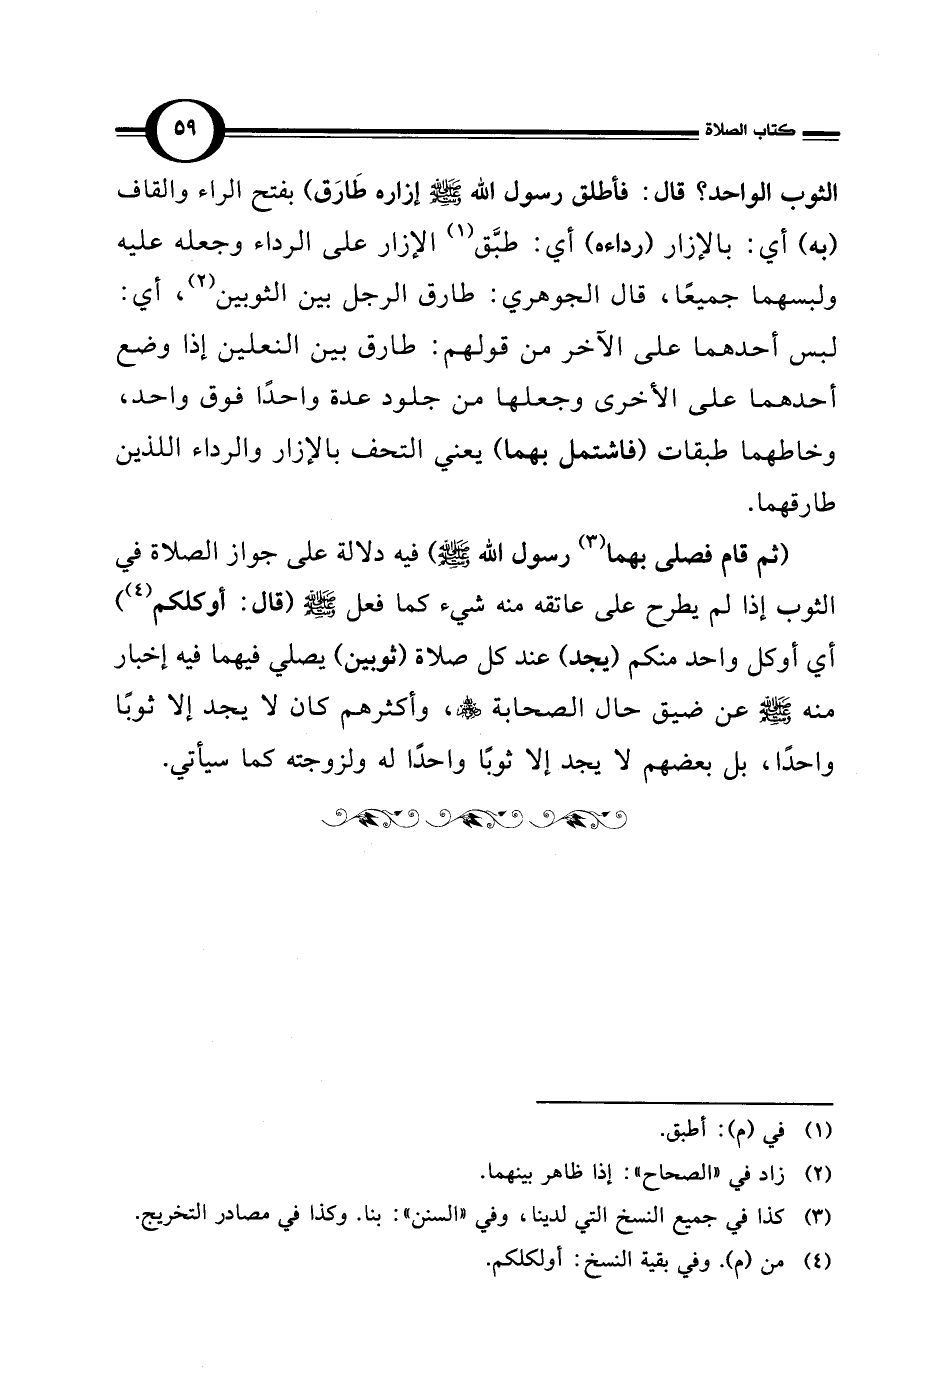 كتاب الصلاة
٥٩
الثوب الواحد؟ قال: فأطلق رسول الله ﷺ إزاره طَارَق) بفتح الراء والقاف
(به) أي: بالإزار (رداءه) أي: طبَّق(١) الإزار على الرداء وجعله عليه
ولبسهما جميعًا، قال الجوهري: طارق الرجل بين الثوبين(٢)، أي:
لبس أحدهما على الآخر من قولهم: طارق بين النعلين إذا وضع
أحدهما على الأخرى وجعلها من جلود عدة واحدًا فوق واحد،
وخاطهما طبقات (فاشتمل بهما) يعني التحف بالإزار والرداء اللذين
طارقهما.
(ثم قام فصلى بهما(٣) رسول الله ﷺ) فيه دلالة على جواز الصلاة في
الثوب إذا لم يطرح على عاتقه منه شيء كما فعل ﷺ (قال: أوكلكم(٤))
أي أوكل واحد منكم (يجد) عند كل صلاة (ثوبين) يصلي فيهما فيه إخبار
منه ﷺ عن ضيق حال الصحابة ﵃، وأكثرهم كان لا يجد إلا ثوبًا
واحدًا، بل بعضهم لا يجد إلا ثوبًا واحدًا له ولزوجته كما سيأتي.
(١) في (م): أطبق.
(٢) زاد في «الصحاح»: إذا ظاهر بينهما.
(٣) كذا في جميع النسخ التي لدينا، وفي «السنن»: بنا. وكذا في مصادر التخريج.
(٤) من (م). وفي بقية النسخ: أولكلكم.